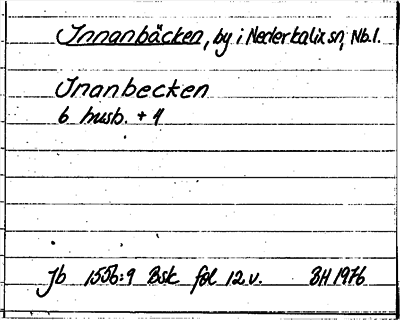 Innanbäcken, by i Nederkalix sn, Nb.l.
Jnanbecken
6 husb. + 4
Jb 1556:9 Bsk fol 12.v. BH 1976